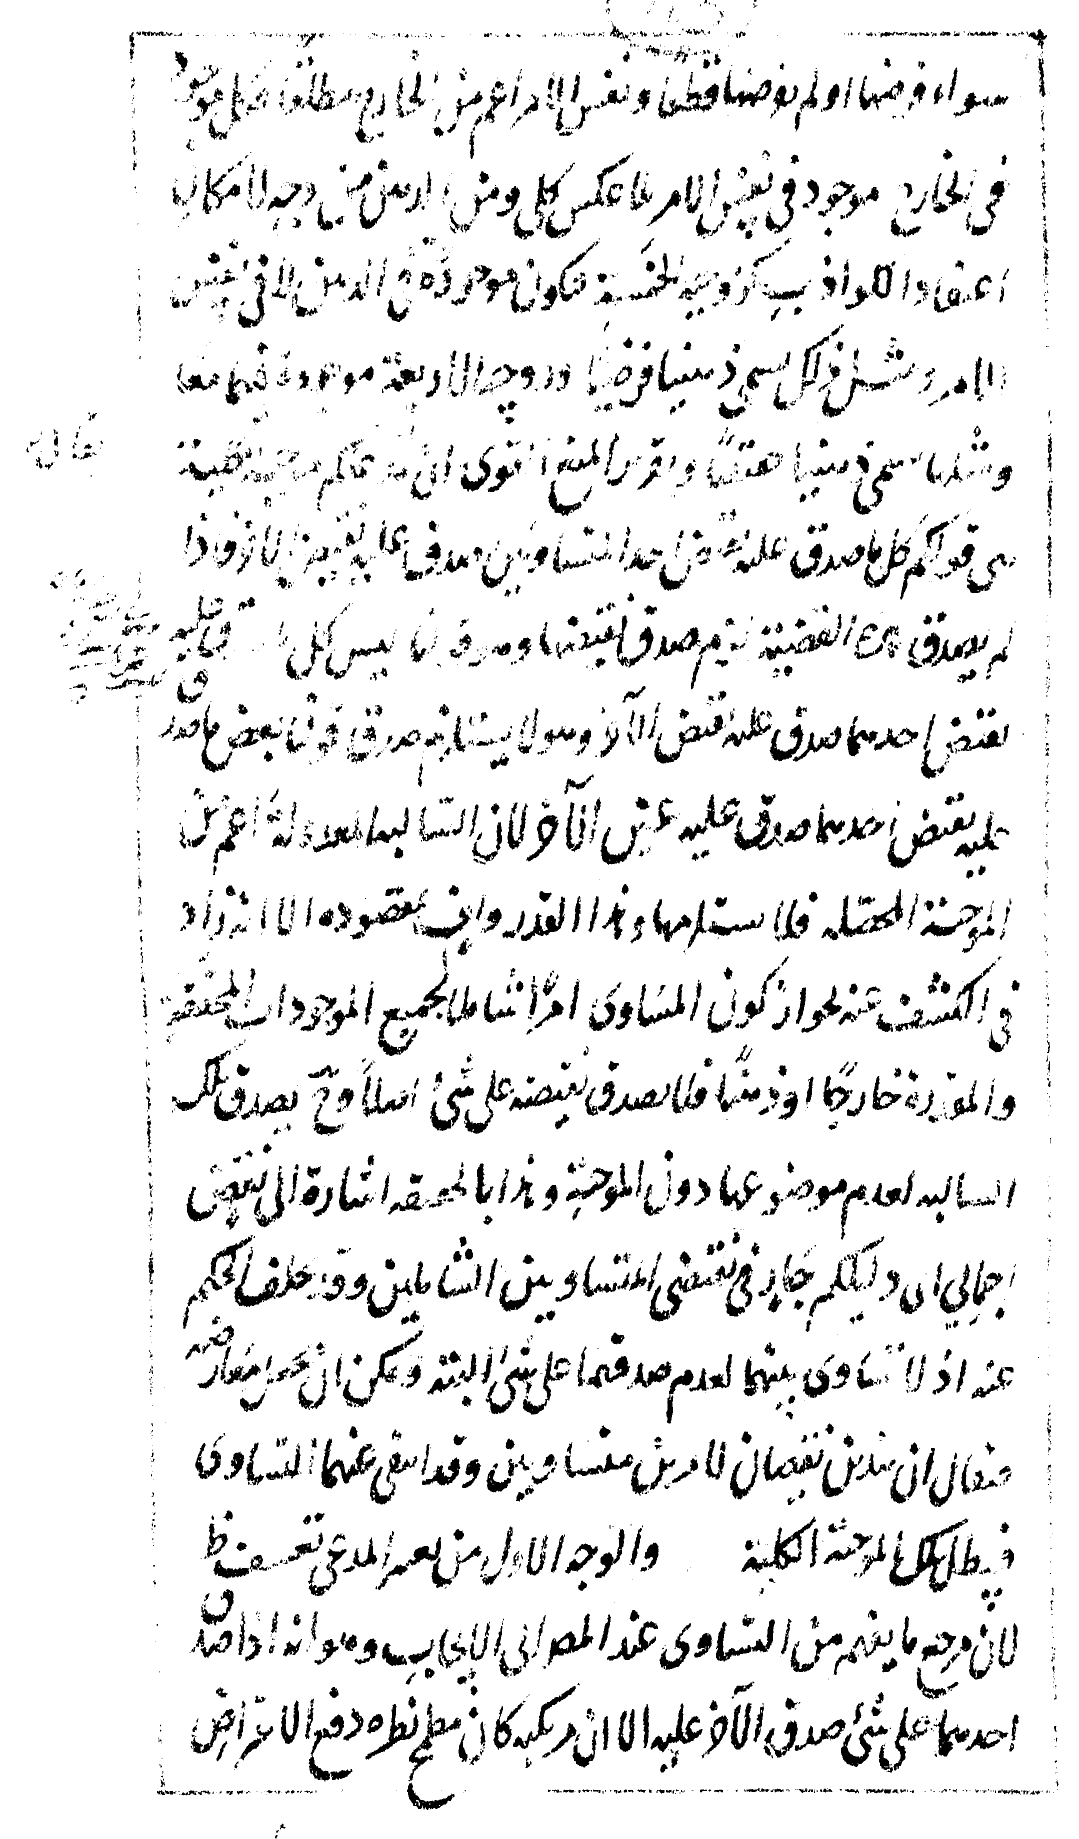 سواء فرضها او لم يفرضها قطعا ونفس الامر اعم من الخارج مطلقا فكل موجود
في الخارج موجود في نفس الامر بلا عكس كلي ومن الذهن من وجه لامكان
اعتقاد الكواذب كزوجية الخمسة فتكون موجودة في الذهن لا في نفس
الامر ومثل ذلك يسمى ذهنيا فرضيا وزوجية الاربعة موجودة فيهما معا
ومثلها يسمى ذهنيا حقيقيا وتقرير المنع اقوى ان
قولكم كل ما صدق عليه نقيض احد المتساويين صدق عليه نقيض الآخر فاذا
لم يصدق هذه القضية لزم صدق نقيضها وهو قولنا ليس كل ما صدق عليه
نقيض احدهما صدق عليه نقيض الآخر وهو لا يستلزم صدق قولنا بعض ما صدق
عليه نقيض احدهما صدق عليه عين الآخر لان السالبة المعدولة اعم من
الموجبة المحصلة فلا يستلزمها وهذا القدر واف بمقصوده الا انه زاد
في الكشف عنه بجواز كون المساوى امرا شاملا لجميع الموجودات المحققة
والمقدرة خارجا او ذهنا فلا يصدق نقيضه على شئ اصلا وح يصدق تلك
السالبة لعدم موضوعها دون الموجبة وهذا بالحقيقة اشارة الى نقض
اجمالي اى دليلكم جار في نقيضي المتساويين الشاملين وقد تخلف الحكم
عنه اذ لا تساوى بينهما لعدم صدقهما على شئ البتة ويمكن ان يجعل معارضة
فيقال ان هذين نقيضان لامرين متساويين وقد انتفى عنهما التساوى
فيبطل تلك الموجبة الكلية والوجه الاول من تعبير المدعى تعسف ظ
لان مرجع ما يفهم من التساوى عند المصر الى الايجاب وهو انه اذا صدق
احدهما على شئ صدق الآخر عليه الا ان مر يكبه كان مطمح نظره دفع الاعتراض